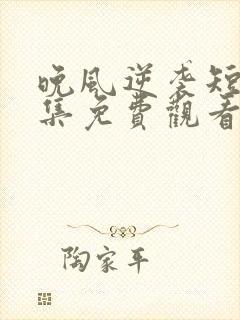 晚风逆袭短
集免費觀看
陶家平